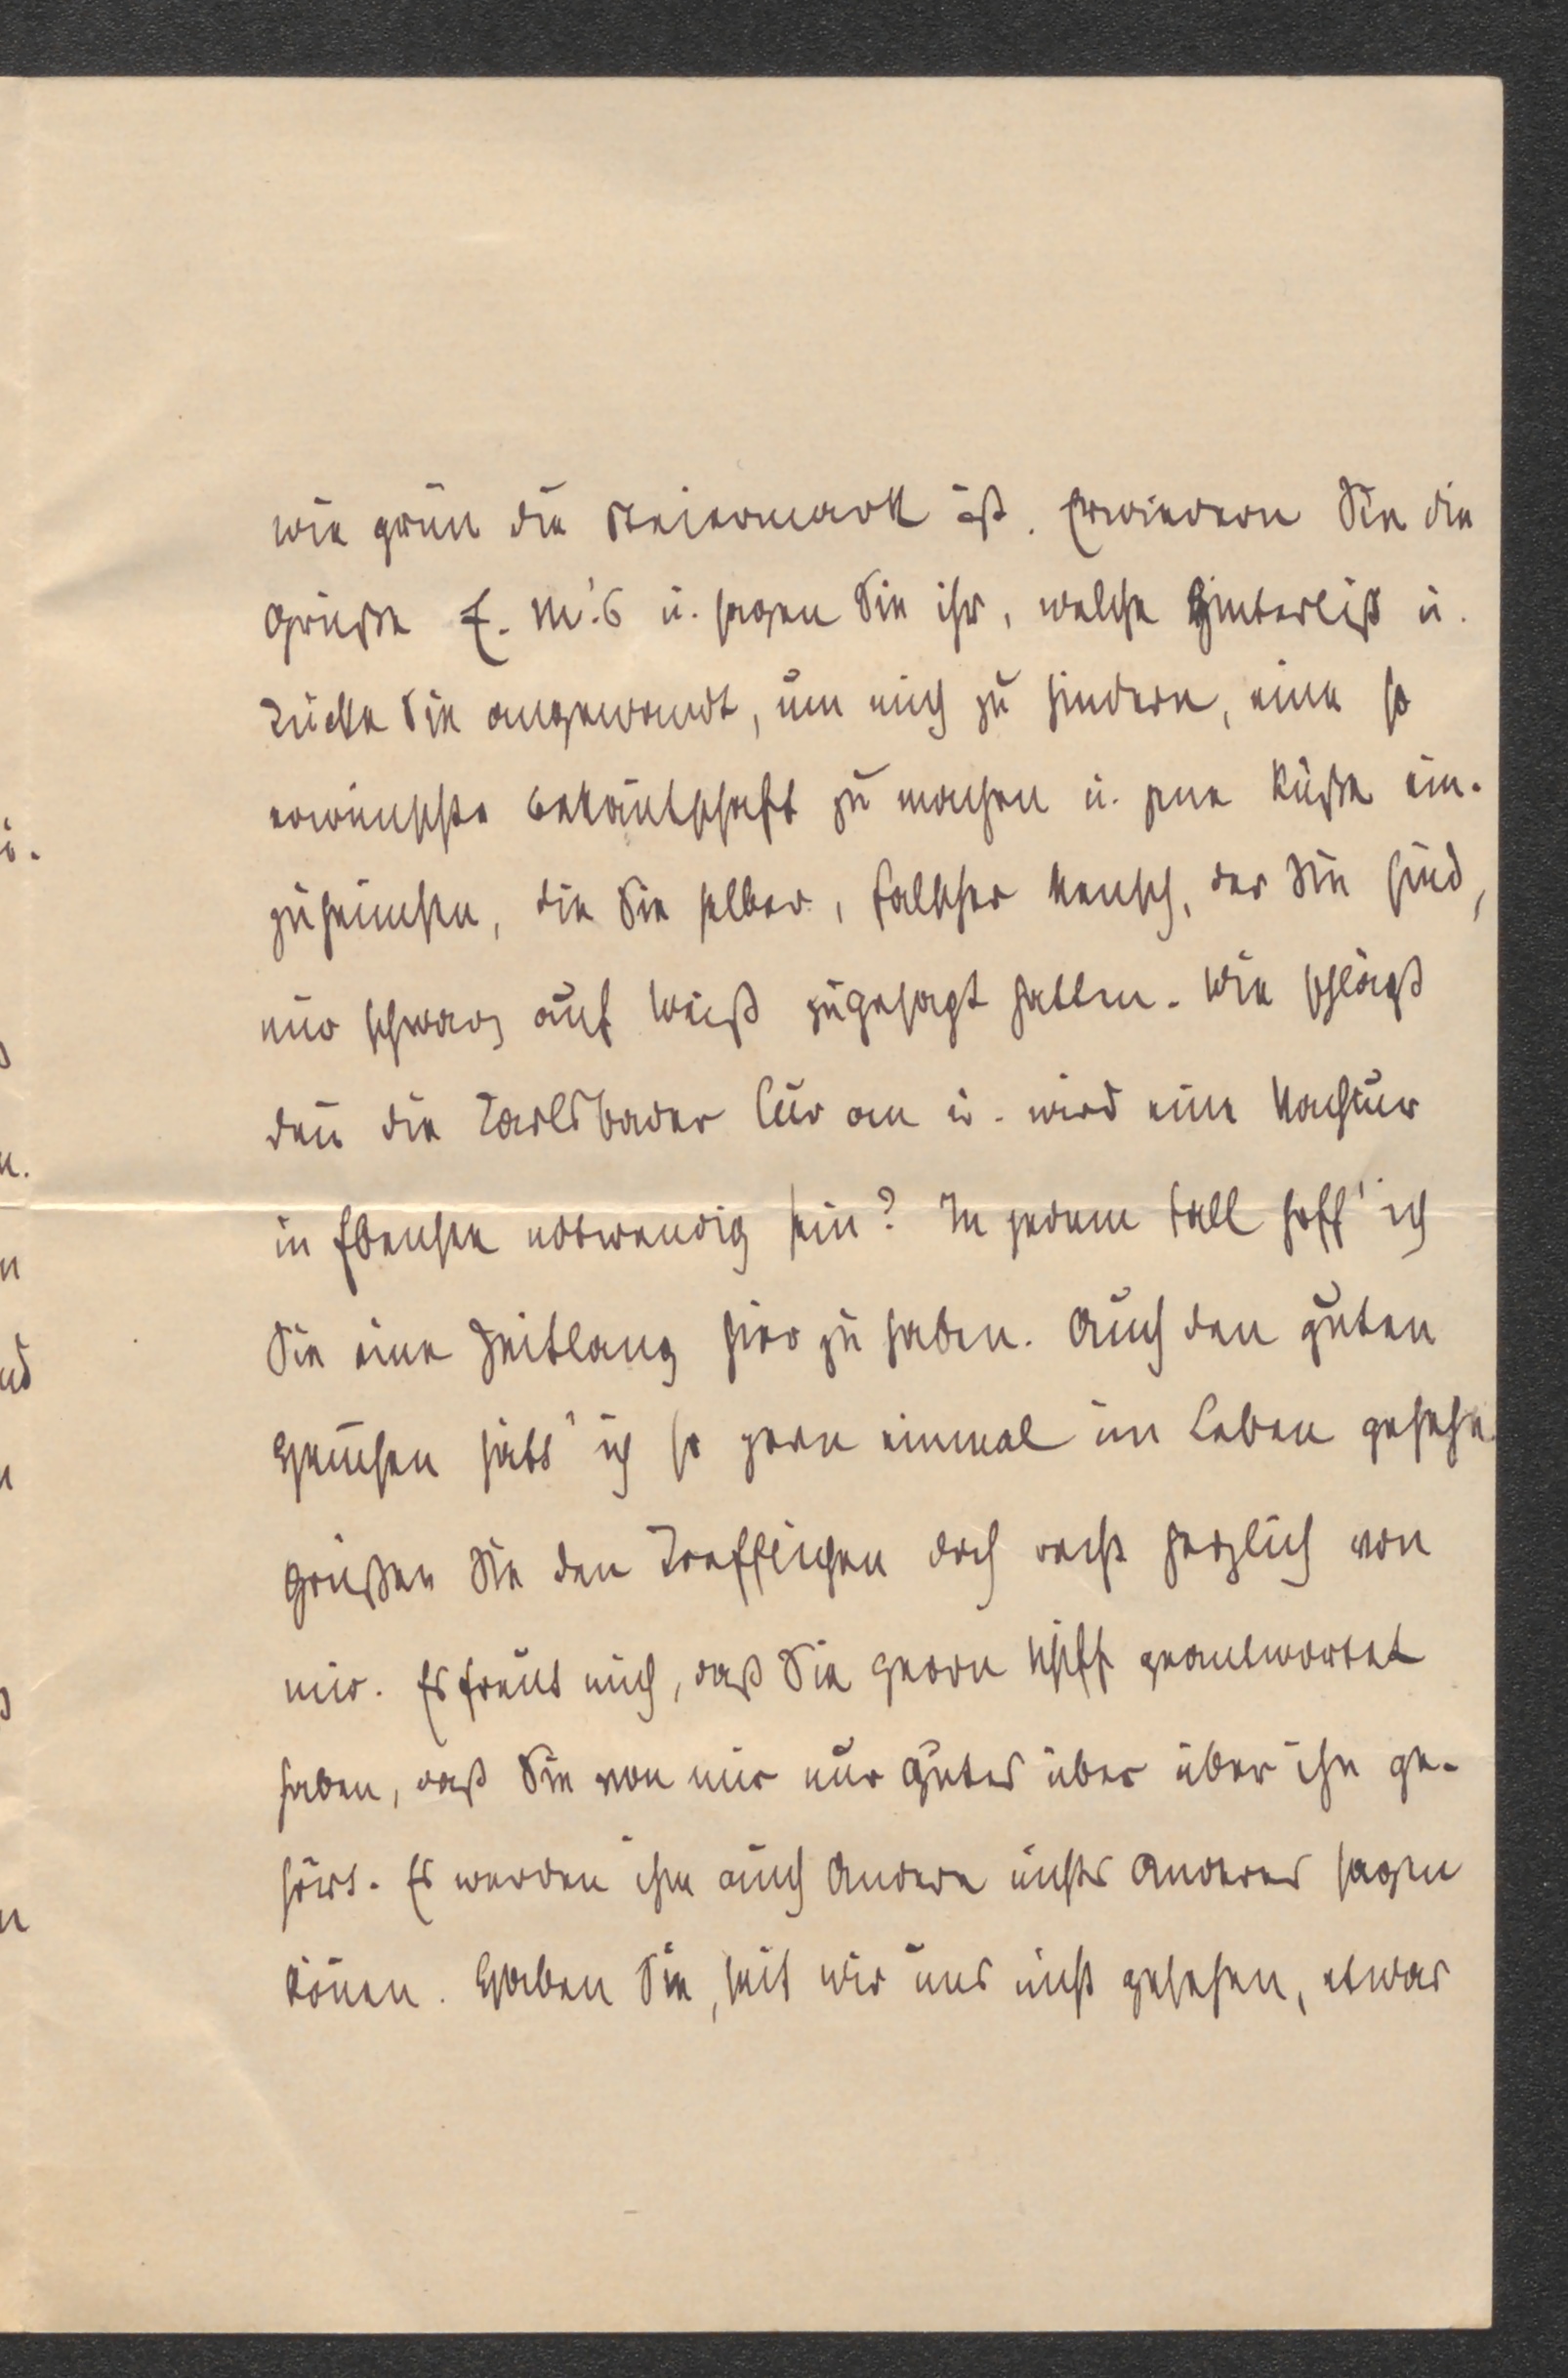 wie grün die Steiermark ist. Erwiedern Sie die
Grüße E. M.'s u. sagen Sie ihr, welche Hinterlist u.
Tücke Sie angewandt, um mich zu hindern, eine so
erwünschte Bekañtschaft zu machen u. jene Küße ein-
zuheimsen, die Sie selber, falscher Mensch, der Sie sind,
mir schwarz auf weiß zugesagt hatten. Wie schlägt
deñ die Carlsbader Cur an u. wird eine Nachcur
in Ebensee notwendig sein? In jedem Fall hoff' ich
Sie eine Zeitlang hier zu haben. Auch den guten
hätt' ich so gern einmal im Leben gesehen.
Grüßen Sie den Trefflichen doch recht herzlich von
mir. Es freut mich, daß Sie Herrn geantwortet
haben, daß Sie von mir nur Gutes über über ihn ge-
hört. Es werden ihm auch Andere nichts Anderes sagen
köñen. Haben Sie, seit wir uns nicht gesehen, etwas